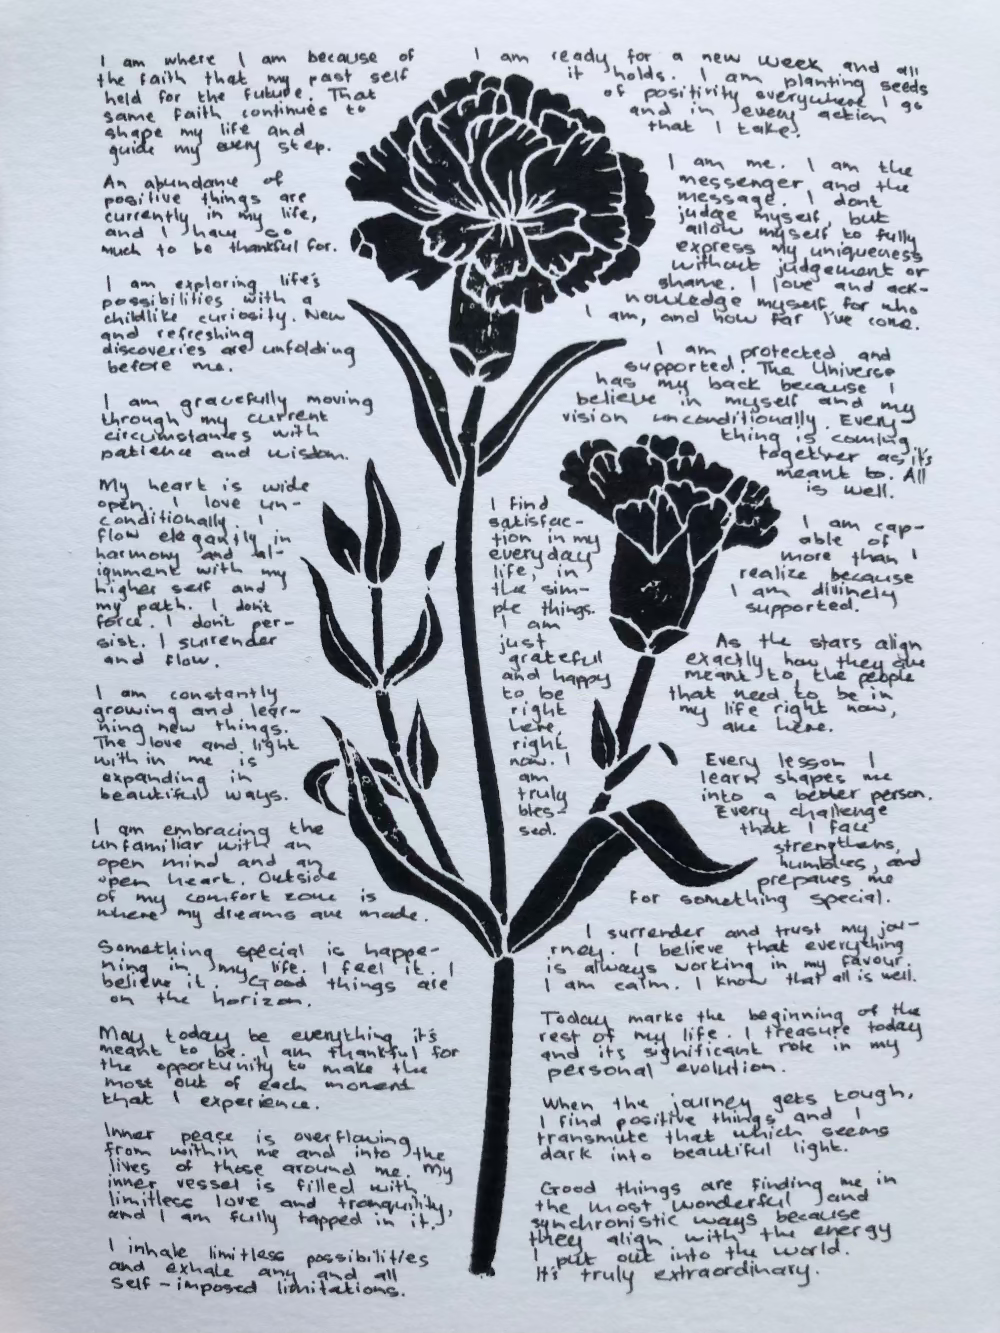 I am where I am because of
the faith that my past self
held for the future. That
same faith continues to
shape my life and
guide my every step.
An abundance of
positive things are
currently in my life,
and I have so
much to be thankful for.
I am exploring life's
possibilities with a
childlike curiosity. New
and refreshing
discoveries are unfolding
before me.
I am gracefully moving
through my current
circumstances with
patience and wisdom.
My heart is wide
open. I love un-
conditionally. I
flow elegantly in
harmony and al-
ignment with my
higher self and
my path. I don't
force. I don't per-
sist. I surrender
and flow.
I am constantly
growing and lear-
ning new things.
The love and light
within me is
expanding in
beautiful ways.
I am embracing the
unfamiliar with an
open mind and an
open heart. Outside
of my comfort zone is
where my dreams are made.
Something special is happe-
ning in my life. I feel it. I
believe it. Good things are
on the horizon.
May today be everything it's
meant to be. I am thankful for
the opportunity to make the
most out of each moment
that I experience.
Inner peace is overflowing
from within me and into the
lives of those around me. My
inner vessel is filled with
limitless love and tranquility,
and I am fully tapped in it.
I inhale limitless possibilities
and exhale any and all
self-imposed limitations.
I am ready for a new week and all
it holds. I am planting seeds
of positivity everywhere I go
and in every action
that I take.
I am me. I am the
messenger, and the
message. I dont
judge myself, but
allow myself to fully
express my uniqueness
without judgement or
shame. I love and ack-
nowledge myself for who
I am, and how far I've come.
I am protected and
supported. The Universe
has my back because I
believe in myself and my
vision unconditionally. Every-
thing is coming
together as it's
meant to. All
is well.
I find
satisfac-
tion in my
everyday
life, in
the sim-
ple things.
I am
just
grateful
and happy
to be
right
here,
right
now. I
am
truly
bles-
sed.
I am cap-
able of
more than I
realize because
I am divinely
supported.
As the stars align
exactly how they are
meant to, the people
that need to be in
my life right now,
are here.
Every lesson I
learn shapes me
into a better person.
Every challenge
that I face
strengthens,
humbles, and
prepares me
for something special.
I surrender and trust my jou-
rney. I believe that everything
is always working in my favour.
I am calm. I know that all is well.
Today marks the beginning of the
rest of my life. I treasure today
and its significant role in my
personal evolution.
When the journey gets tough,
I find positive things and I
transmute that which seems
dark into beautiful light.
Good things are finding me in
the most wonderful and
synchronistic ways because
they align with the energy
I put out into the world.
It's truly extraordinary.